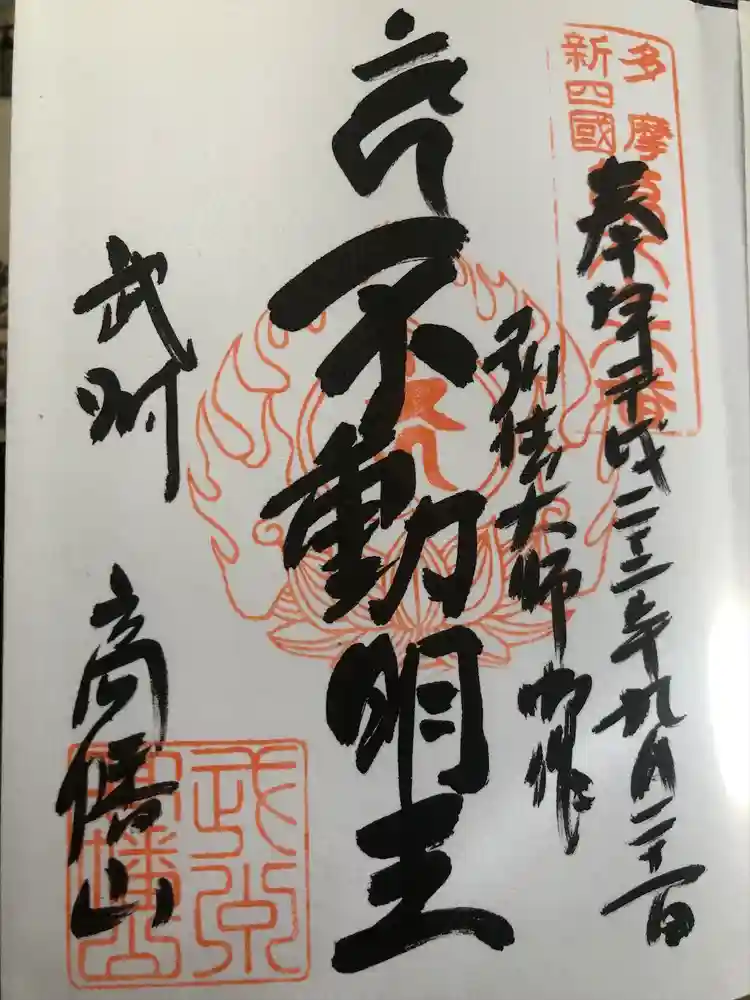 多摩
新四國
奉拝 平成二十二年九月二十一日
弘法大師 御作
不動明王
武州 高幡山